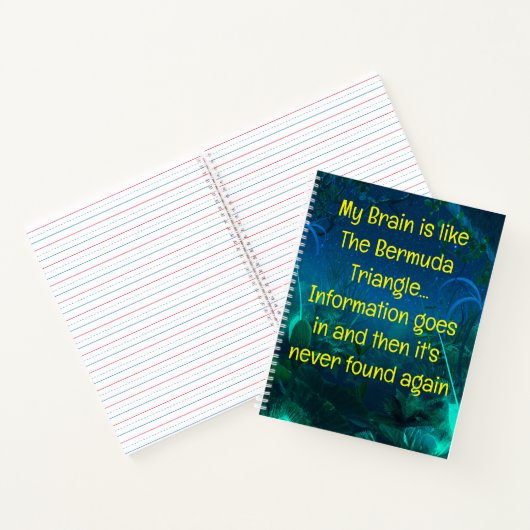 My Brain is like
The Bermuda
Triangle...
Information goes
in and then it's
never found again